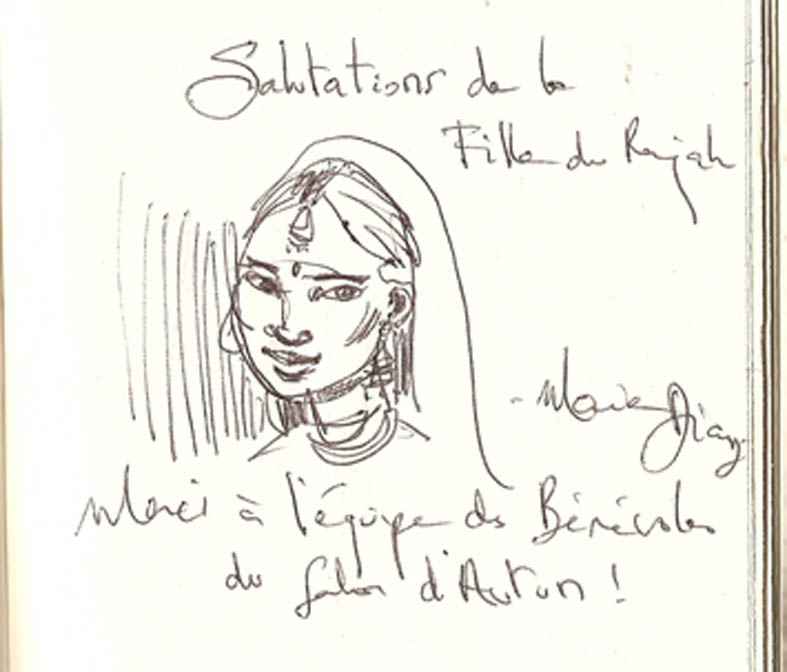 Salutations de la
Fille du Rajah
- Marie Diaz
Merci à l'équipe des Bénévoles
du Salon d'Autun !